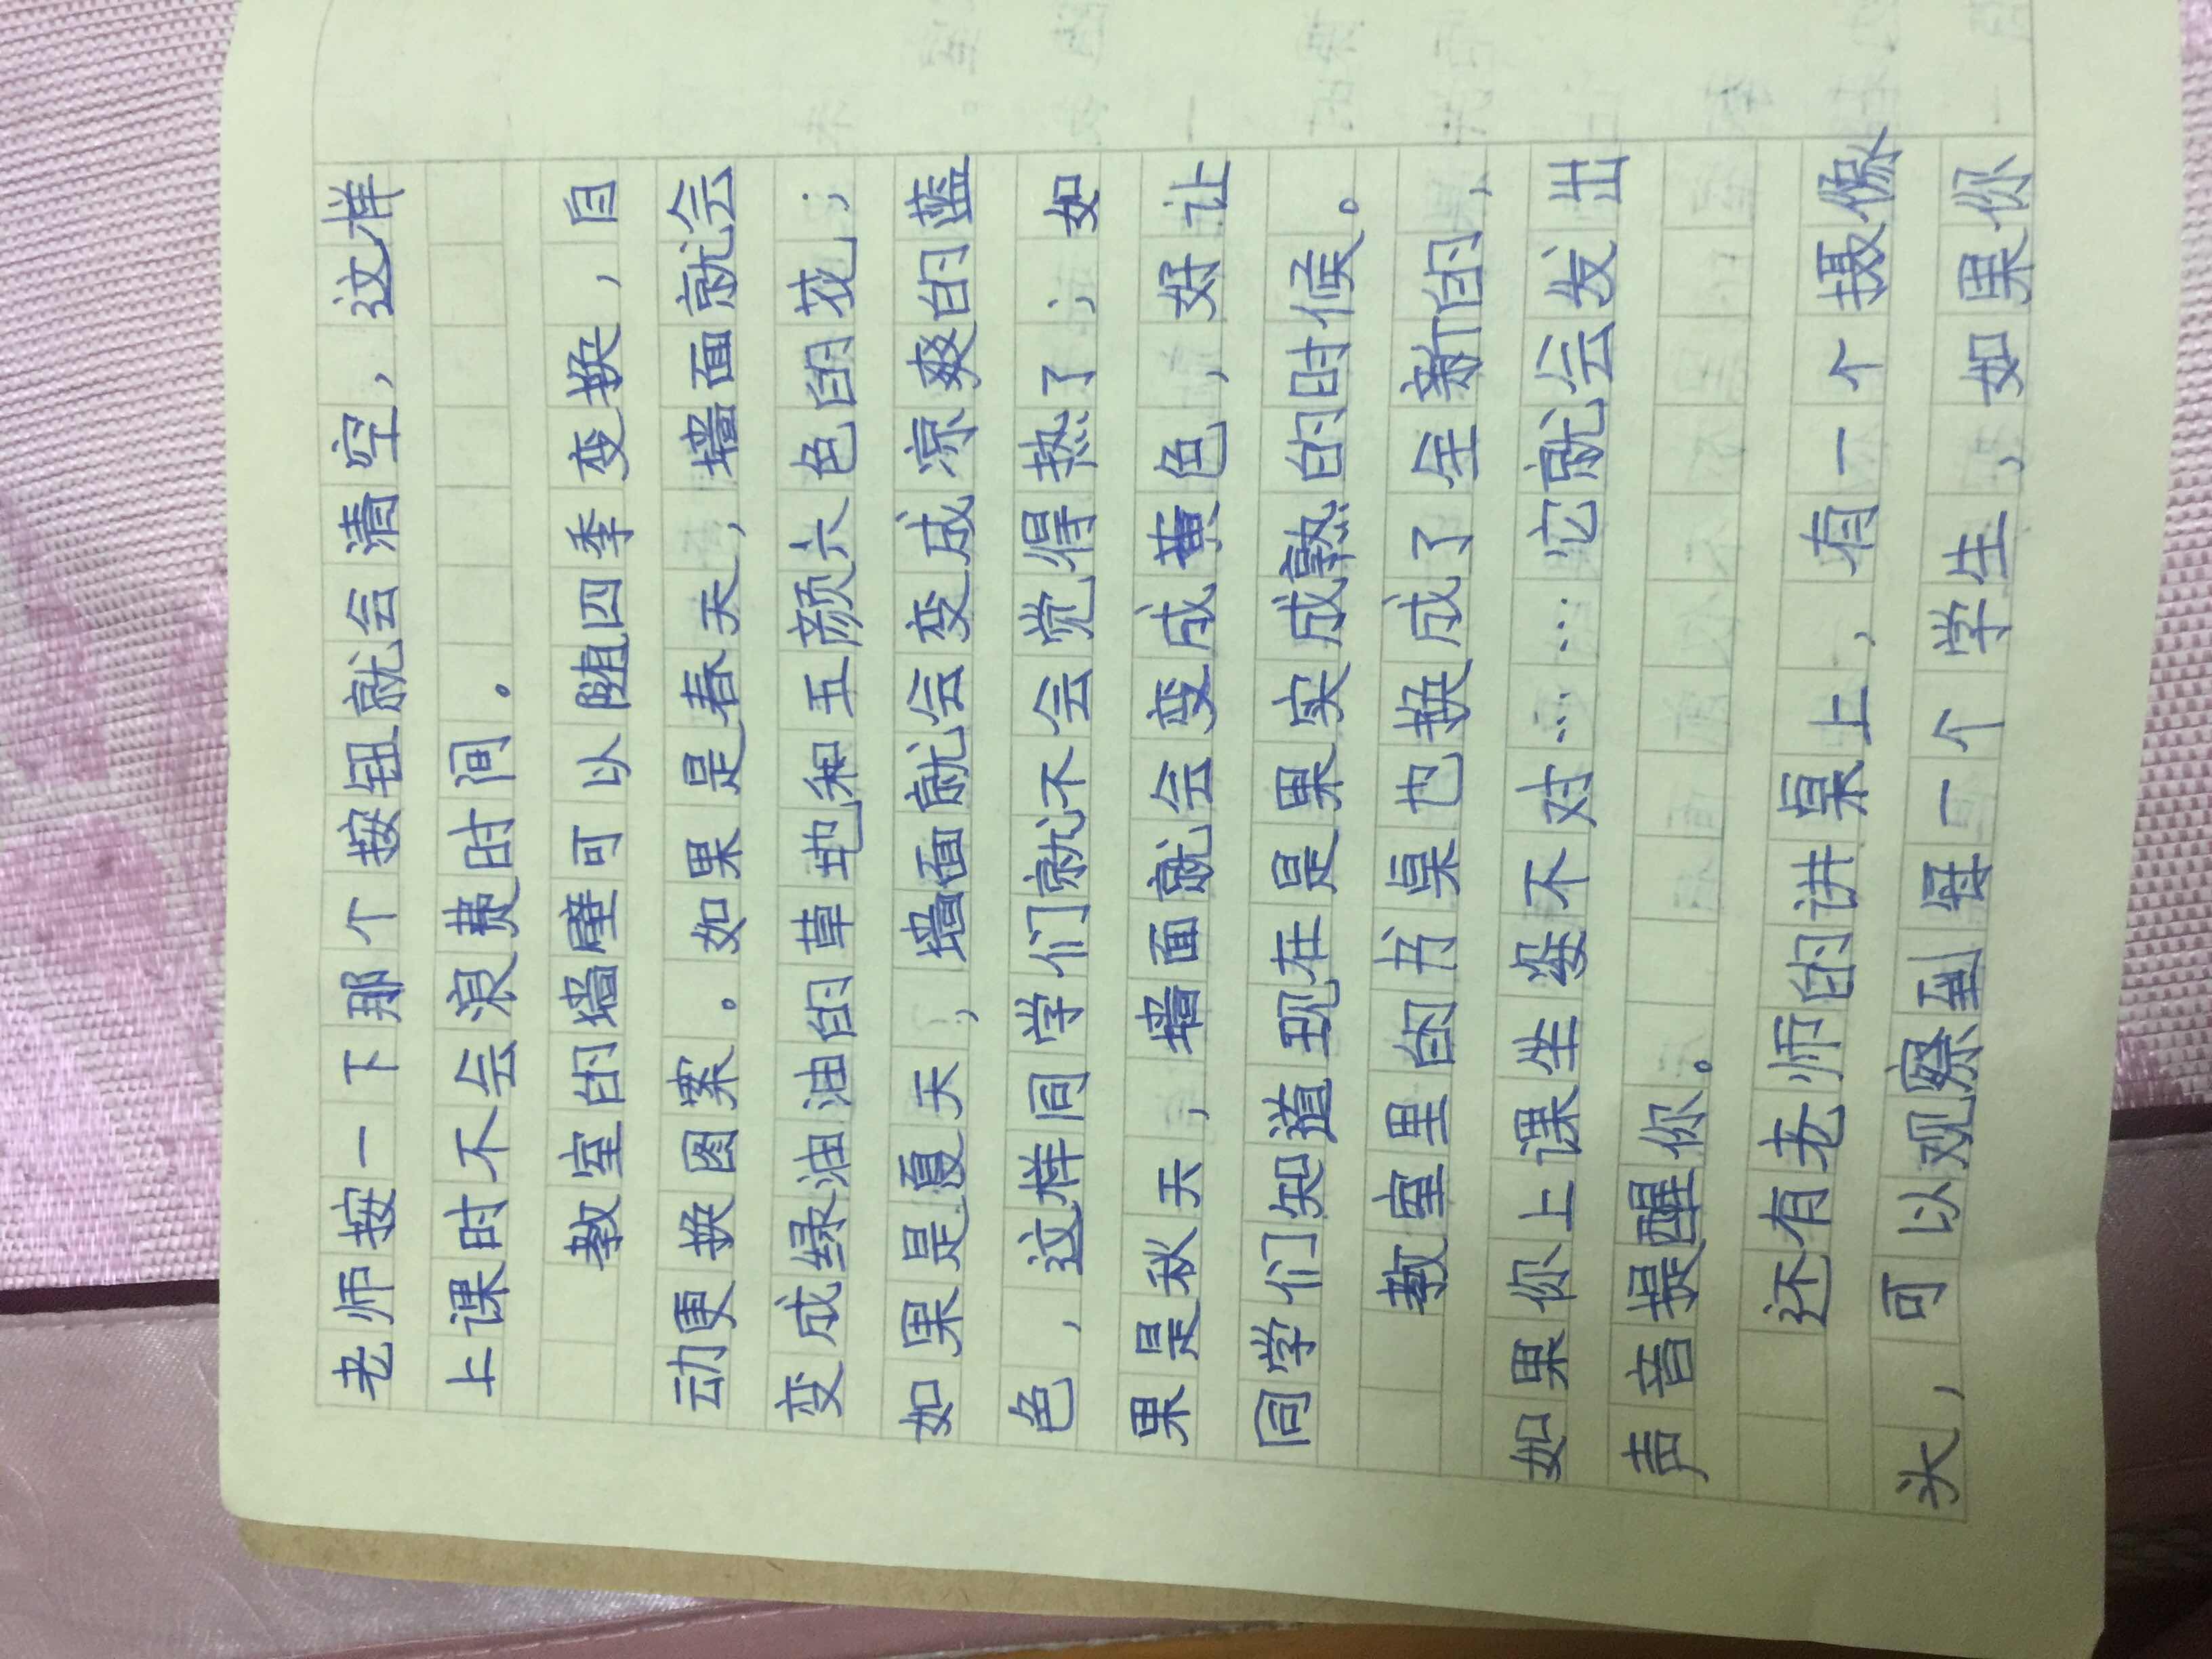 老师按一下那个按钮就会清空，这样
上课时不会浪费时间。
教室的墙壁可以随四季变换，自
动更换图案。如果是春天，墙面就会
变成绿油油的草地和五颜六色的花；
如果是夏天，墙面就会变成凉爽的蓝
色，这样同学们就不会觉得热了；如
果是秋天，墙面就会变成黄色，好让
同学们知道现在是果实成熟的时候。
教室里的书桌也换成了全新的，
如果你上课坐姿不对……它就会发出
声音提醒你。
还有老师的讲桌上，有一个摄像
头，可以观察到每一个学生，如果你